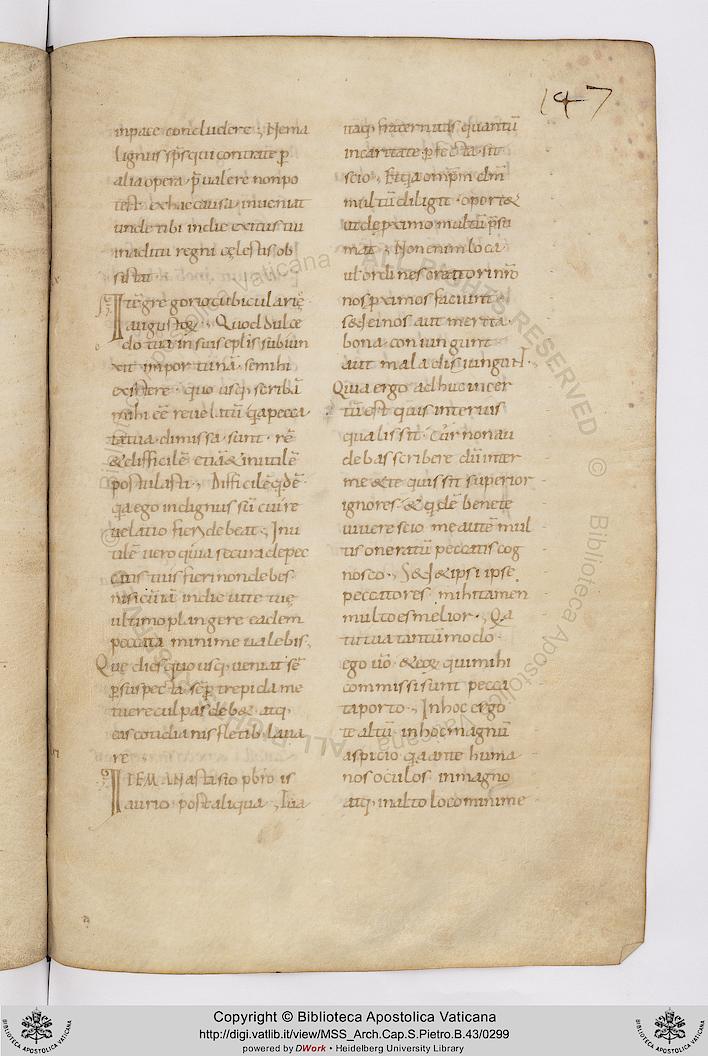 147
inpace concludere ; Nema
lignus sp̄s qui contrate p̄
alia opera p̄ualere non po
test ex hac causa inueniat
unde tibi in die exitus tui
in aditu regni cęlestis ob
sistat
Itē gregorio cubicularię
augustae ; Quod dulce
do tua in suis epl̄is subiun
xit importunā semihi
existere quo usq; scribā
mihi eē reuelatū q̄a pecca
ta tua dimissa sunt rē
& difficilē etiā & inutilē
postulasti ; Difficilē q̄dē
q̄a ego indignus sū cui re
uelatio fieri debeat ; Inu
tilē uero quia secura de pec
catis tuis fieri non debes
nisi cū iā in die uite tuę
ultimo plangere eadem
peccata minime ualebis ;
Que dies quo usq; ueniat sē
p suspecta sēp trepida me
tuere culpas deb& atq;
eas cotidianis fletib; laua
re
ITEM ANastasio pbr̄o is
aurio post aliqua ; Ita
itaq; fraternitas quantū
in caritate perfecta sit
scio ; Et q̄a omp̄m dm̄
multū diligit oport&
ut de p̄ximo multū p̄su
mat ; Non enim loca
ul̄ ordines creatori nrō
nos p̄ximos faciunt
sed einos aut merita
bona coniungunt
aut mala disiungunt.
Quia ergo adhuc incer
tū est quis inter uis
qualis sit cur non au
debas scribere dū inter
me & te quis sit superior
ignores & q̄dē bene te
uiuere scio me autē mul
tis oneratū peccatis cog
nosco ; Sed & si ipse
peccatores mihi tamen
multo es melior ; Qa
tu tua tantūmodo
ego uō & eoꝝ qui mihi
commissi sunt pecca
ta porto ; In hoc ergo
te altū in hoc magnū
aspicio q̄a ante huma
nos oculos in magno
atq; in alto loco minime
Copyright © Biblioteca Apostolica Vaticana
http://digi.vatlib.it/view/MSS_Arch.Cap.S.Pietro.B.43/0299
powered by DWork • Heidelberg University Library